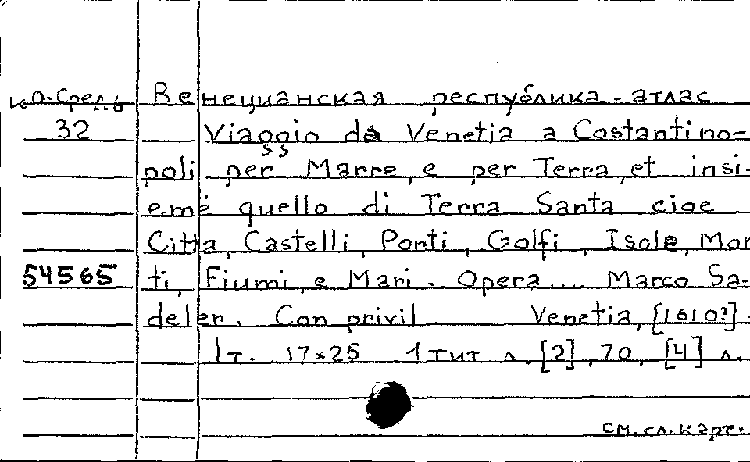 Ко-Средь Венецианская республика - атлас
32 Viaggio da Venetia a Costantino=
poli per Marre, e per Terra, et insi-
eme quello di Terra Santa cioe
Citta, Castelli, Ponti, Golfi, Isole, Mon
54565 ti, Fiumi, e Mari. Opera ... Marco Sa-
deler. Con privil Venetia, [1610?] -
1т. 17×25 1 тит л, [2], 70, [4] л.
см. сл. карт.